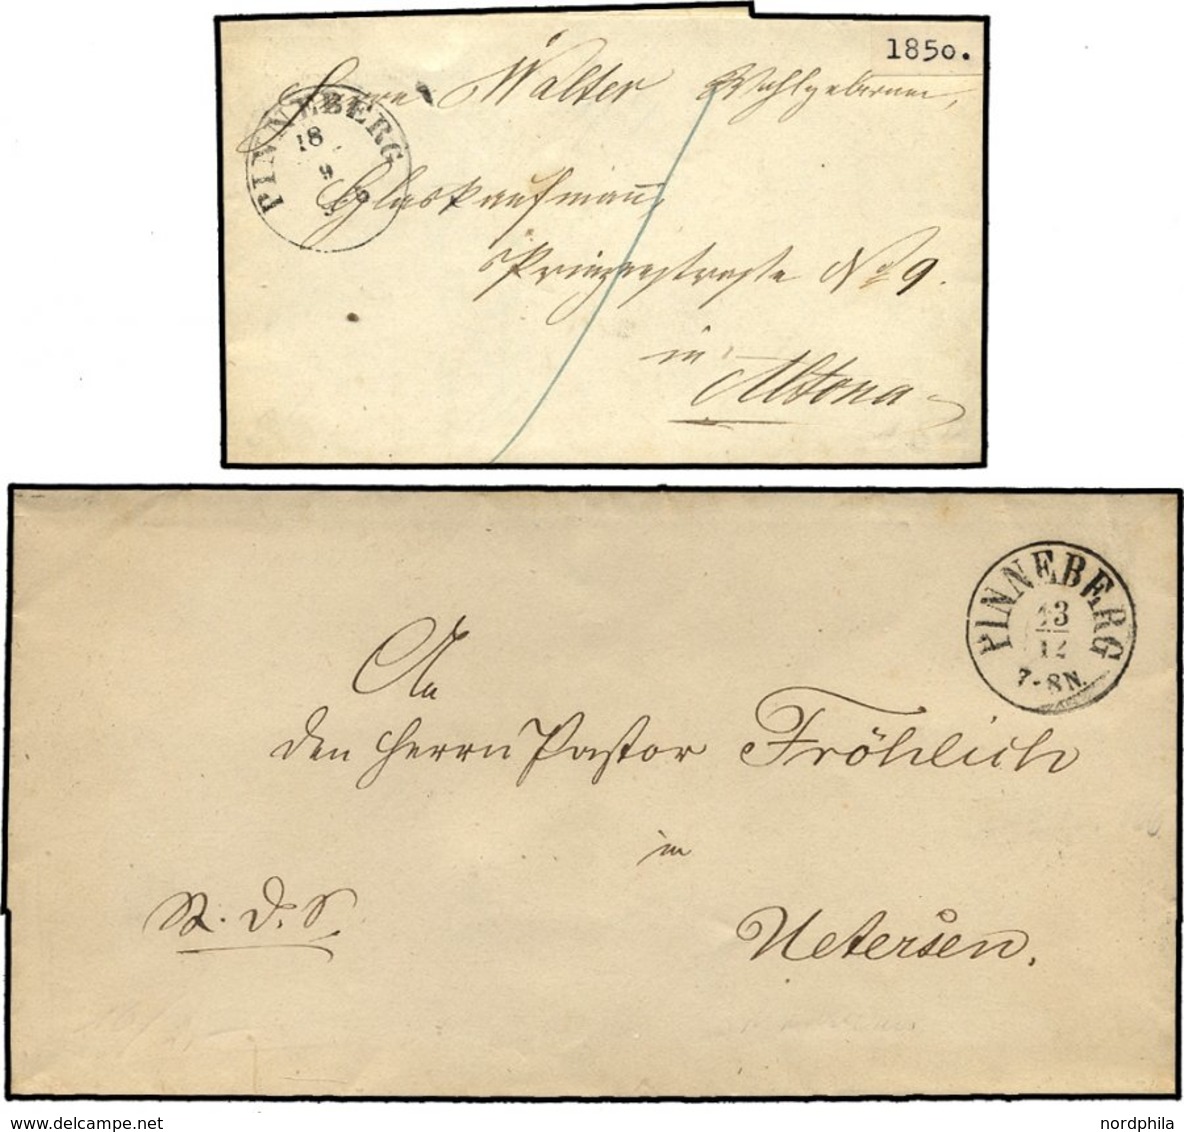 1850.
Herrn Walter Wohlgeboren,
PINNEBERG
18
9
Glaskaufmann
Prinzenstraße No 9.
in
Altona
PINNEBERG
13
12
7-8N.
An
den Herrn Pastor Fröhlich
in
S. d. S.
Uetersen.
nordphila